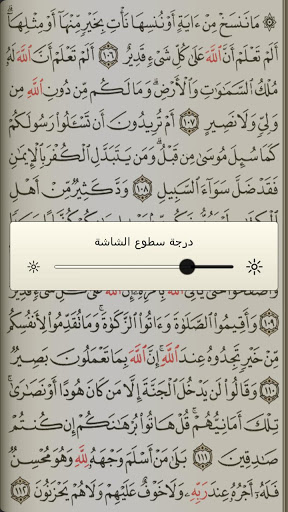 ۞ مَا نَنسَخْ مِنْ ءَايَةٍ أَوْ نُنسِهَا نَأْتِ بِخَيْرٍ مِّنْهَآ أَوْ مِثْلِهَآ ۗ
أَلَمْ تَعْلَمْ أَنَّ ٱللَّهَ عَلَىٰ كُلِّ شَىْءٍ قَدِيرٌ ١٠٦ أَلَمْ تَعْلَمْ أَنَّ ٱللَّهَ لَهُۥ
مُلْكُ ٱلسَّمَٰوَٰتِ وَٱلْأَرْضِ ۗ وَمَا لَكُم مِّن دُونِ ٱللَّهِ مِن
وَلِىٍّ وَلَا نَصِيرٍ ١٠٧ أَمْ تُرِيدُونَ أَن تَسْـَٔلُوا۟ رَسُولَكُمْ
كَمَا سُئِلَ مُوسَىٰ مِن قَبْلُ ۗ وَمَن يَتَبَدَّلِ ٱلْكُفْرَ بِٱلْإِيمَٰنِ
فَقَدْ ضَلَّ سَوَآءَ ٱلسَّبِيلِ ١٠٨ وَدَّ كَثِيرٌ مِّنْ أَهْلِ
درجة سطوع الشاشة
وَأَقِيمُوا۟ ٱلصَّلَوٰةَ وَءَاتُوا۟ ٱلزَّكَوٰةَ ۚ وَمَا تُقَدِّمُوا۟ لِأَنفُسِكُم
١٠٩
مِّنْ خَيْرٍ تَجِدُوهُ عِندَ ٱللَّهِ ۗ إِنَّ ٱللَّهَ بِمَا تَعْمَلُونَ بَصِيرٌ
١١٠ وَقَالُوا۟ لَن يَدْخُلَ ٱلْجَنَّةَ إِلَّا مَن كَانَ هُودًا أَوْ نَصَٰرَىٰ ۗ
تِلْكَ أَمَانِيُّهُمْ ۗ قُلْ هَاتُوا۟ بُرْهَٰنَكُمْ إِن كُنتُمْ
صَٰدِقِينَ ١١١ بَلَىٰ مَنْ أَسْلَمَ وَجْهَهُۥ لِلَّهِ وَهُوَ مُحْسِنٌ
فَلَهُۥٓ أَجْرُهُۥ عِندَ رَبِّهِۦ وَلَا خَوْفٌ عَلَيْهِمْ وَلَا هُمْ يَحْزَنُونَ ١١٢